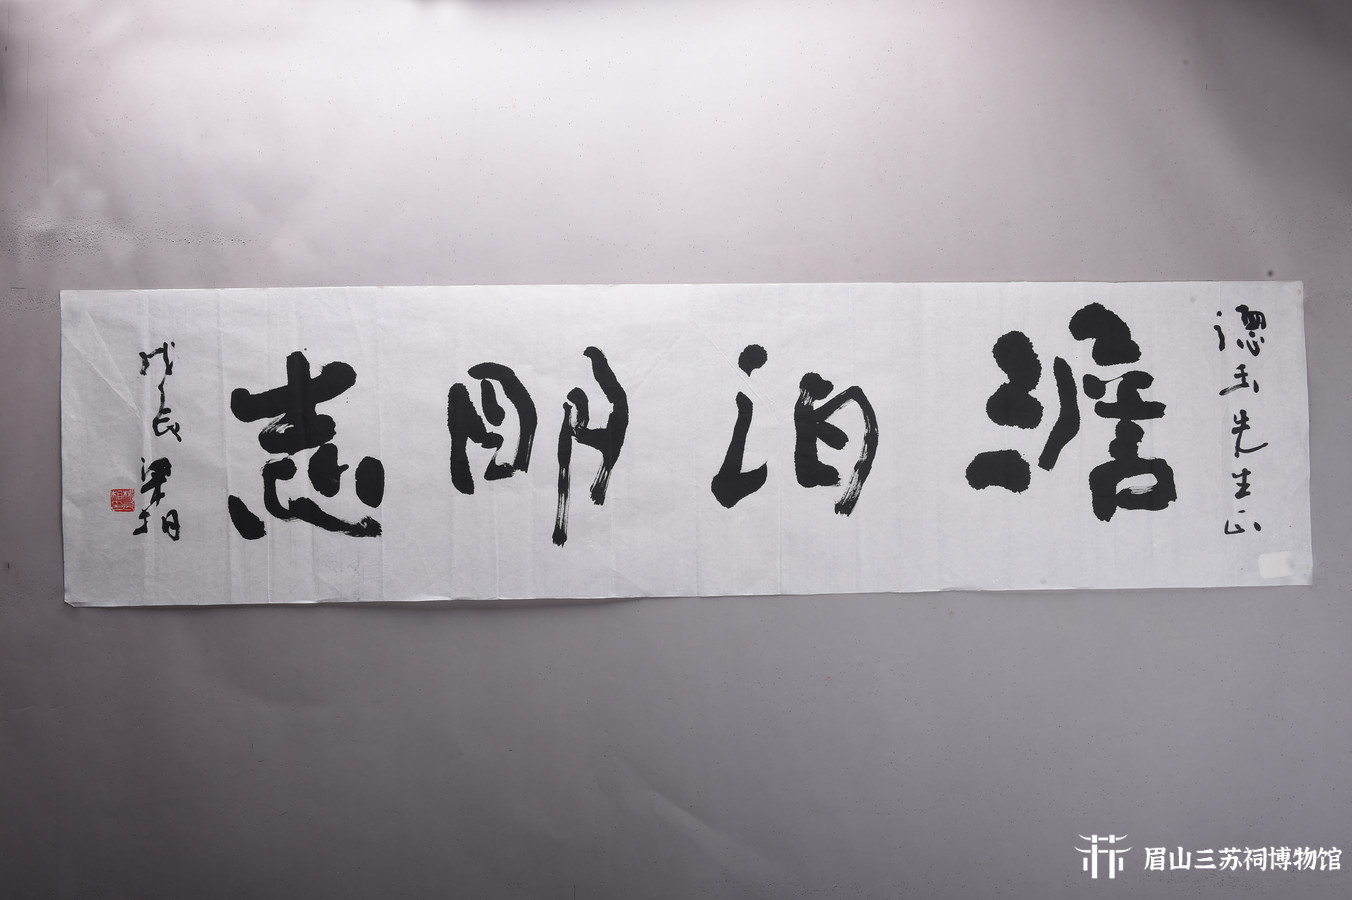 德玉先生正
澹泊明志
戊辰 梁翔
眉山三苏祠博物馆